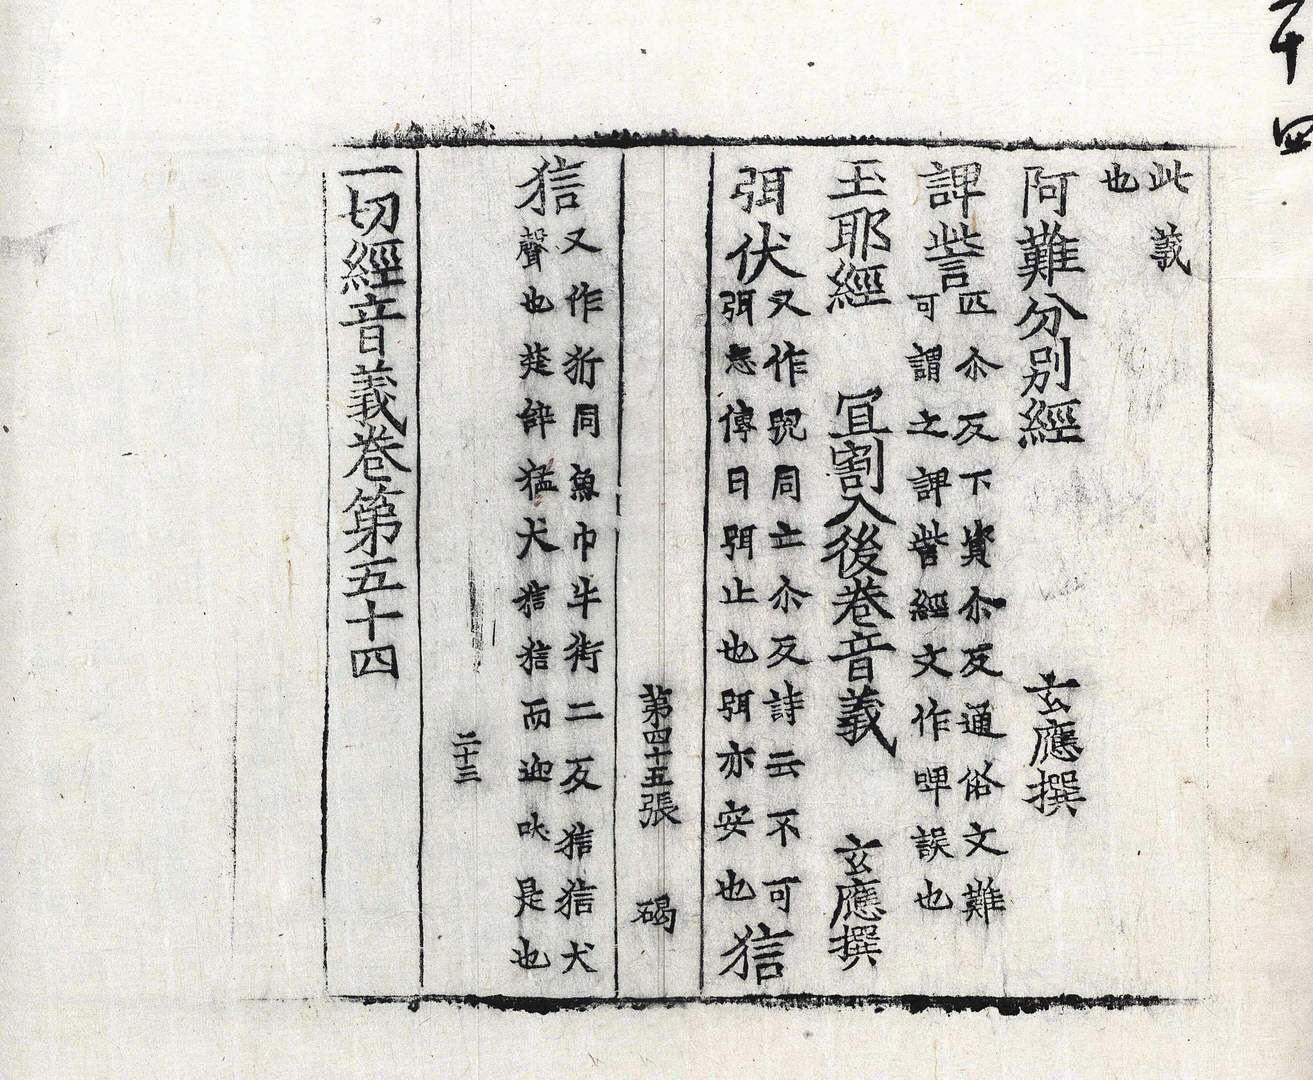 十四
此義
也
阿難分別經 玄應撰
諀訾
匹尒反下資尒反通俗文難
可謂之諀訾經文作啤誤也
玉耶經 冝割入後卷音義 玄應撰
弭伏
又作同立尒反詩云不可
弭忘傳曰弭止也弭亦安也
狺
第四十五張 碣
狺
又作㹞同魚巾牛二反狺狺犬
聲也楚辤猛犬狺狺而迎吠是也
二十三
一切經音義卷第五十四